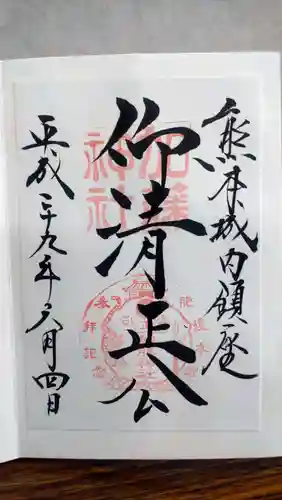 熊本城内鎮座
仰清正公
平成二十九年六月四日
加藤
神社
参拝記念